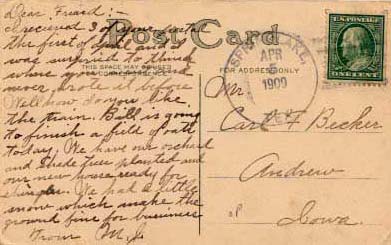 Dear Friend:-
I recieved 3 of yours into
the first of April and I
was suprised to think
Post Card
THIS SPACE MAY BE USED
FOR ADDRESS ONLY
never wrote it before
Well how do you like
the train. Bill is going
to finish a field of oats
today. We have our orchard
and shade trees planted and
our new house ready for
shingles. We had a little
snow which make the
ground fine for business
From M.J.
SPIRIT LAKE,
APR
5
1909
U.S. POSTAGE
ONE CENT
Mr.
Carl F Becker
Andrew
Iowa.